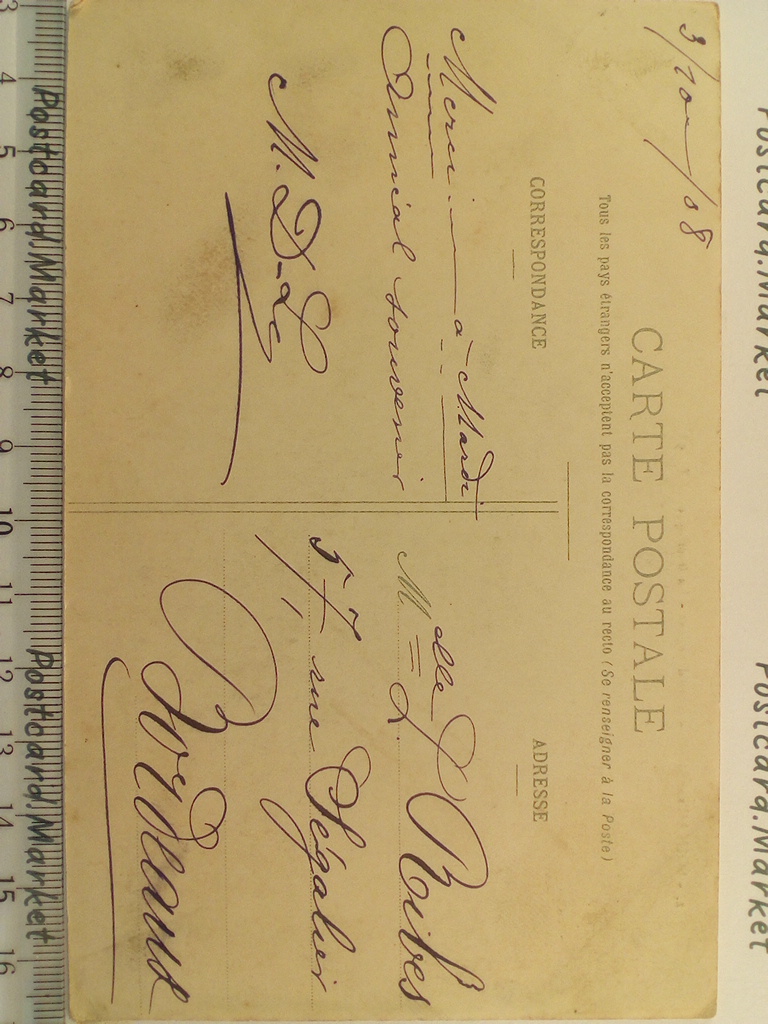 3/10/08
CARTE POSTALE
Tous les pays étrangers n'acceptent pas la correspondance au recto (Se renseigner à la Poste)
CORRESPONDANCE
Merci - à Mardi
Amical souvenir
M. D-L
ADRESSE
Melle L. Ribes
57, rue Ségalier
Bordeaux
3 4 5 6 7 8 9 10 11 12 13 14 15 16
Postcard.Market
Postcard.Market
Postcard.Market
Postcard.Market